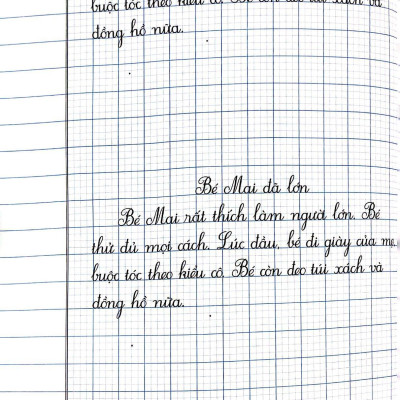 buộc tóc theo kiểu cô. Bé còn đeo túi xách và
đồng hồ nữa.
Bé Mai đã lớn
Bé Mai rất thích làm người lớn. Bé
thử đủ mọi cách. Lúc đầu, bé đi giày của mẹ,
buộc tóc theo kiểu cô. Bé còn đeo túi xách và
đồng hồ nữa.